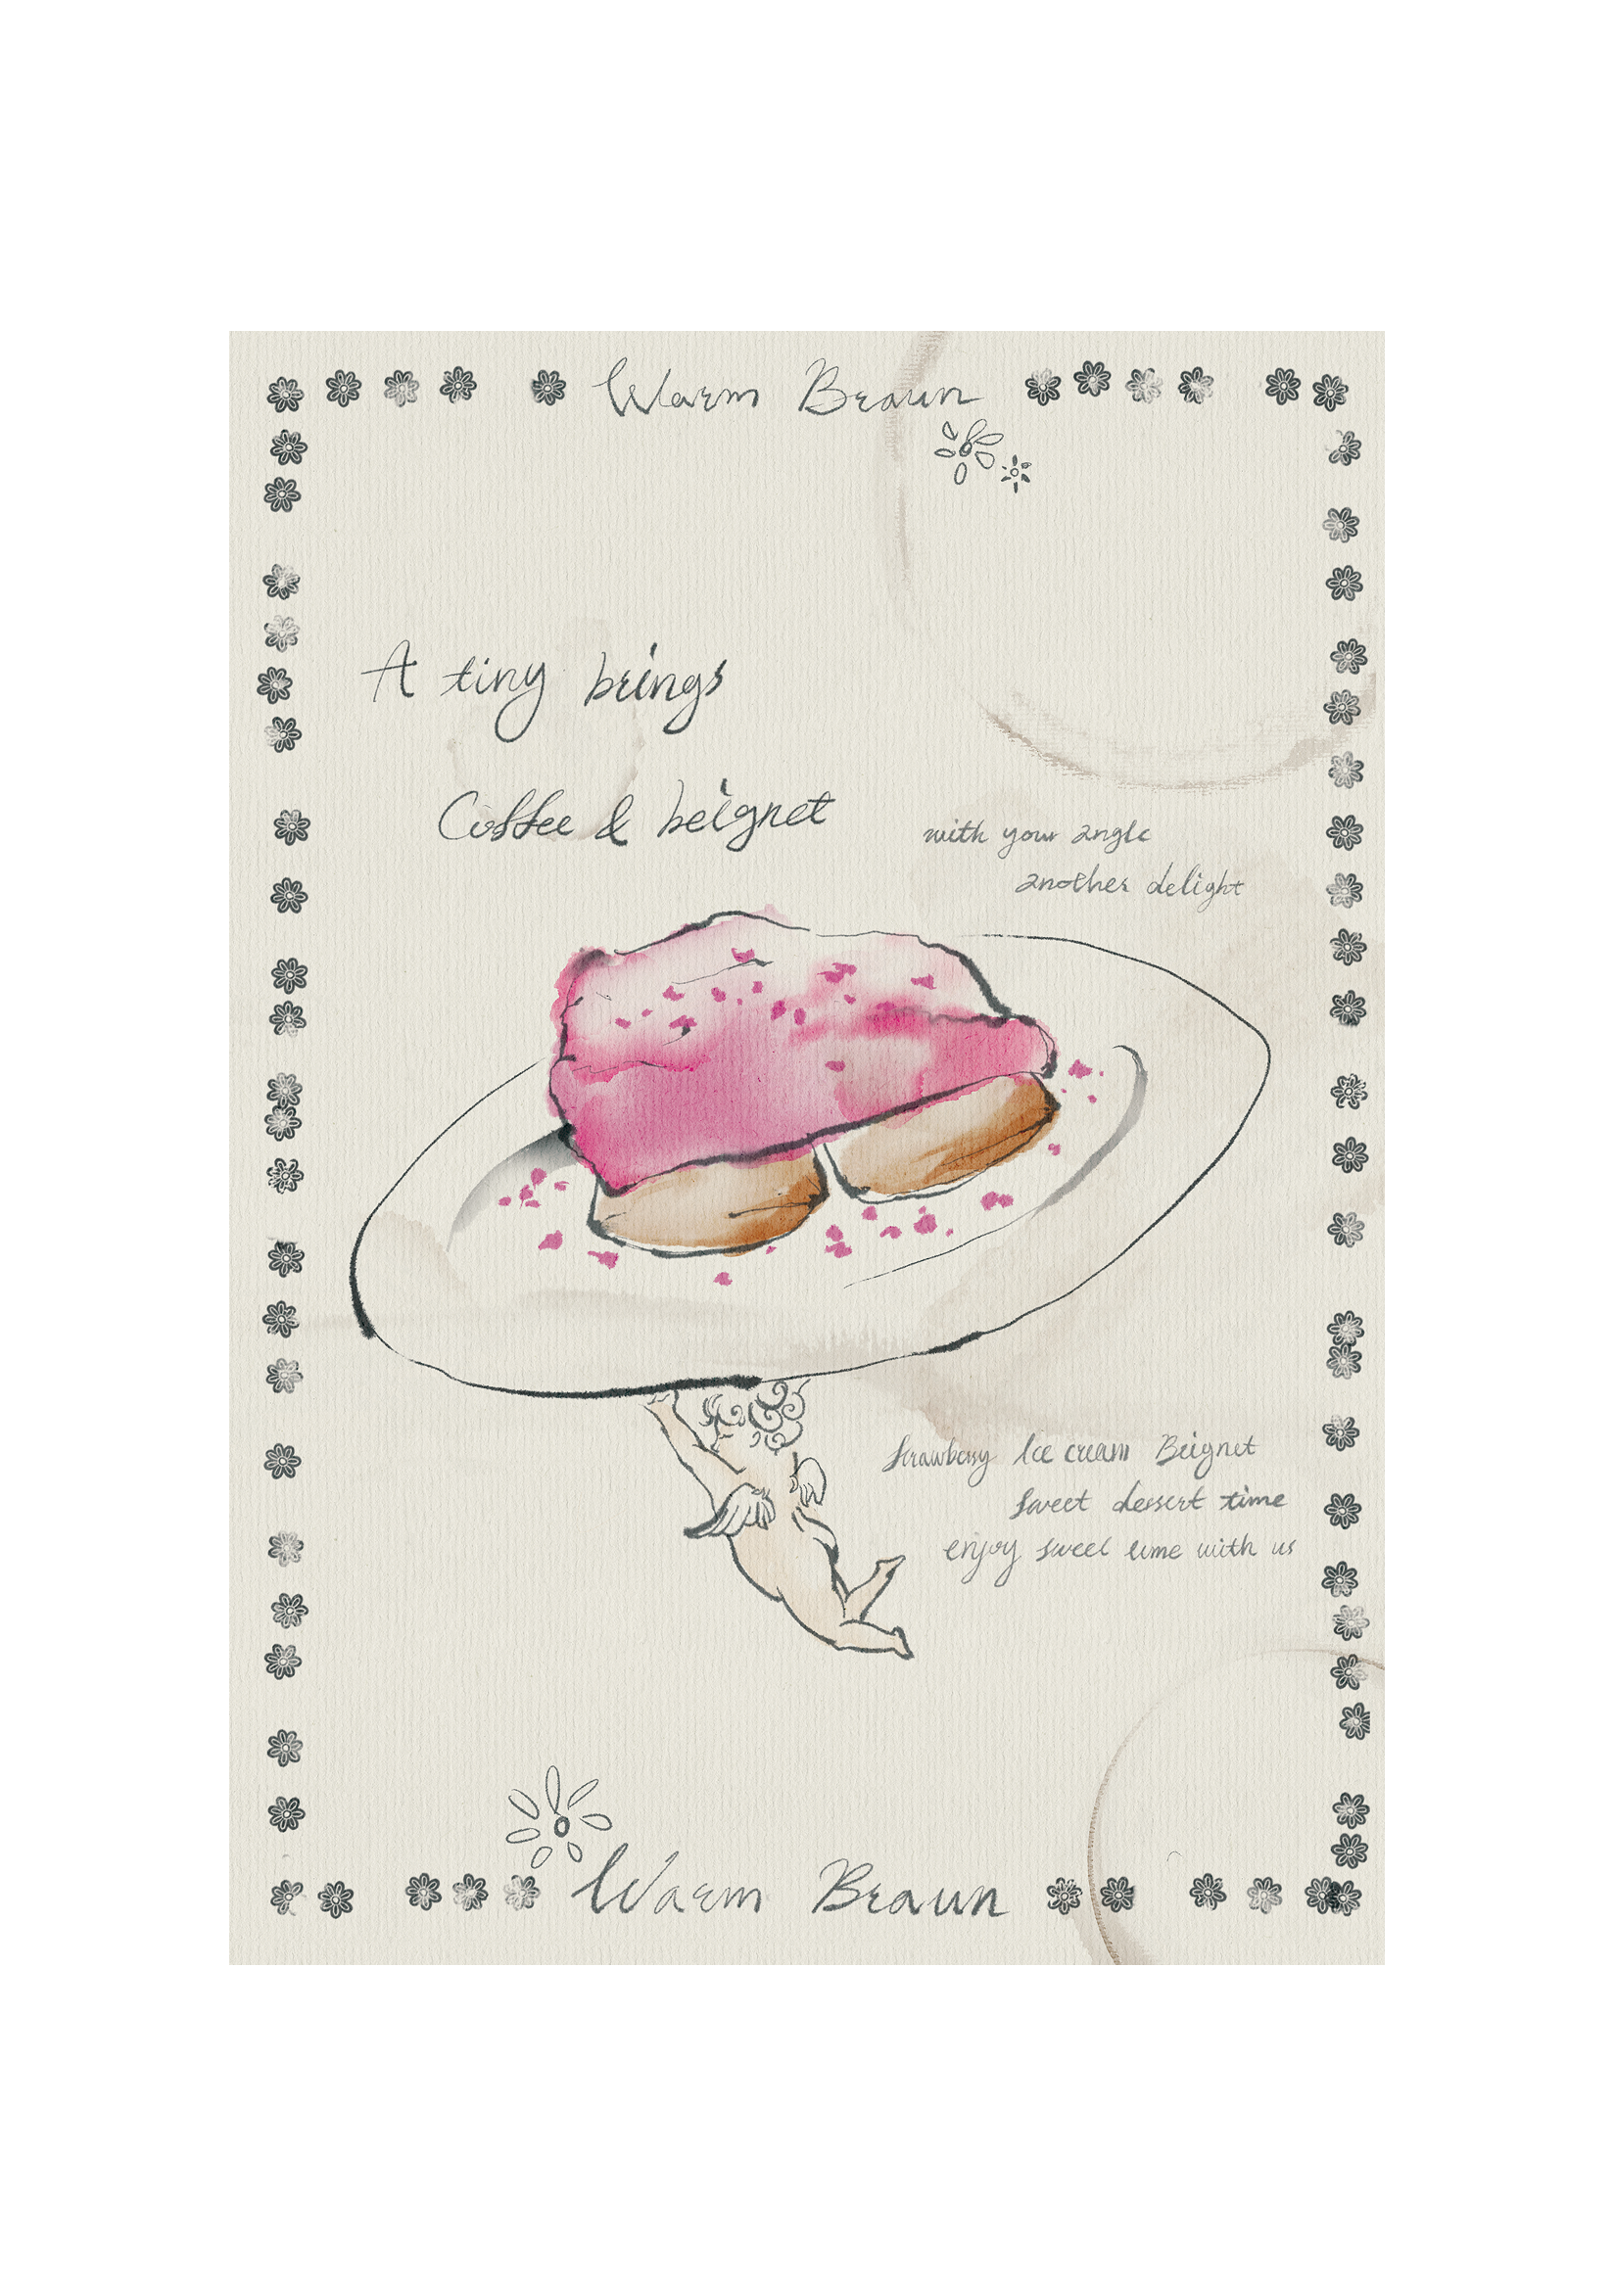 Warm Braun
A tiny brings
Coffee & beignet
with your angle
another delight
Strawberry Ice cream Beignet
Sweet dessert time
enjoy sweet time with us
Warm Braun